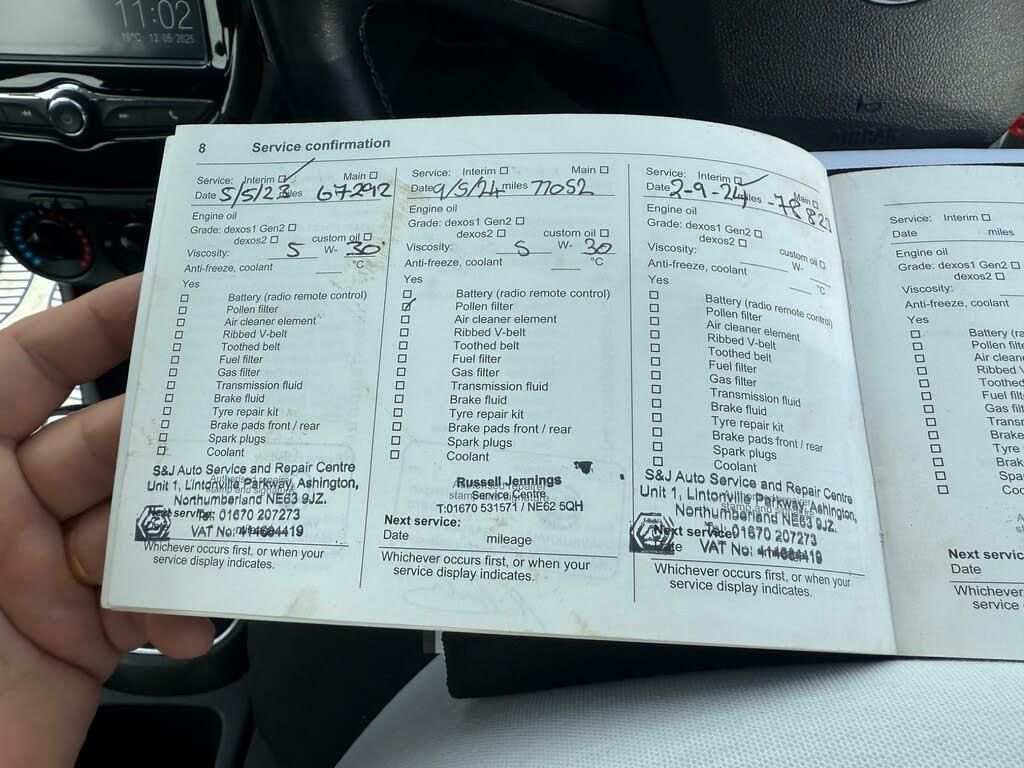 11:02
19°C 12/05/2025
AIRBAG
8 Service confirmation
Service: Interim ☐ Main ☐
Date 5/5/23 miles 67292
Engine oil
Grade: dexos1 Gen2 ☐
dexos2 ☐ custom oil ☐
Viscosity: 5 W- 30
Anti-freeze, coolant ___ °C
Yes
☐ Battery (radio remote control)
☐ Pollen filter
☐ Air cleaner element
☐ Ribbed V-belt
☐ Toothed belt
☐ Fuel filter
☐ Gas filter
☐ Transmission fluid
☐ Brake fluid
☐ Tyre repair kit
☐ Brake pads front / rear
☐ Spark plugs
☐ Coolant
S&J Auto Service and Repair Centre
Unit 1, Lintonville Parkway, Ashington,
Northumberland NE63 9JZ.
Next service: Tel: 01670 207273
VAT No:
Whichever occurs first, or when your
service display indicates.
Service: Interim ☐ Main ☐
Date 9/5/24 miles 77052
Engine oil
Grade: dexos1 Gen2 ☐
dexos2 ☐ custom oil ☐
Viscosity: 5 W- 30
Anti-freeze, coolant ___ °C
Yes
☐ Battery (radio remote control)
☑ Pollen filter
☐ Air cleaner element
☐ Ribbed V-belt
☐ Toothed belt
☐ Fuel filter
☐ Gas filter
☐ Transmission fluid
☐ Brake fluid
☐ Tyre repair kit
☐ Brake pads front / rear
☐ Spark plugs
☐ Coolant
Russell Jennings
Service Centre
T:01670 531571 / NE62 5QH
Next service:
Date mileage
Whichever occurs first, or when your
service display indicates.
Service: Interim ☑ Main ☐
Date 2-9-24 miles -78823
Engine oil
Grade: dexos1 Gen2 ☐
dexos2 ☐ custom oil ☐
Viscosity: ___ W- ___
Anti-freeze, coolant ___ °C
Yes
☐ Battery (radio remote control)
☐ Pollen filter
☐ Air cleaner element
☐ Ribbed V-belt
☐ Toothed belt
☐ Fuel filter
☐ Gas filter
☐ Transmission fluid
☐ Brake fluid
☐ Tyre repair kit
☐ Brake pads front / rear
☐ Spark plugs
☐ Coolant
S&J Auto Service and Repair Centre
Unit 1, Lintonville Parkway, Ashington,
Northumberland NE63 9JZ.
Next service: Tel: 01670 207273
Date VAT No:
Whichever occurs first, or when your
service display indicates.
Service: Interim ☐
Date miles
Engine oil
Grade: dexos1 Gen2 ☐
dexos2 ☐
Viscosity:
Anti-freeze, coolant
Yes
☐ Battery (ra
☐ Pollen filte
☐ Air cleane
☐ Ribbed V
☐ Toothed
☐ Fuel filte
☐ Gas filt
☐ Transm
☐ Brake
☐ Tyre
☐ Brake
☐ Spa
☐ Co
Next servic
Date
Whichever
service